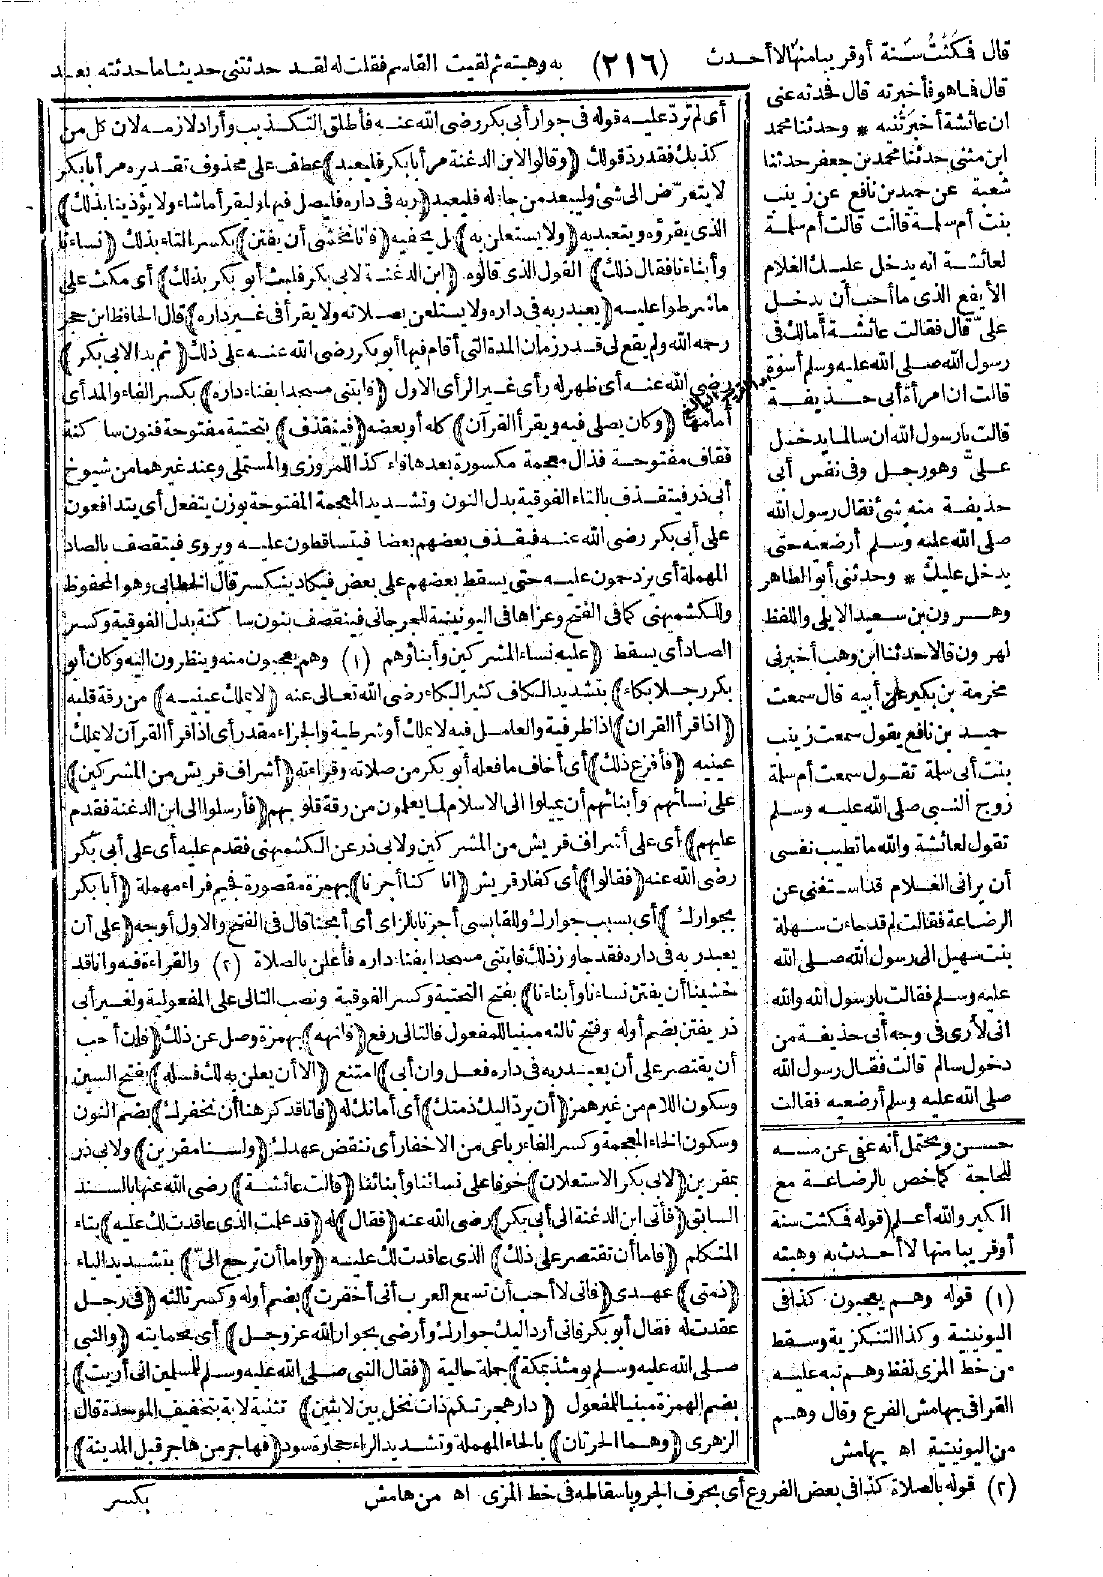 قال فمكثت سنة أو قريبا منها لا أحدث
(٢١٦)
به وهبته ثم لقيت القاسم فقلت له لقد حدثتنى حديثا ما حدثته بعد
قال فما هو فأخبرته قال فحدثه عنى
ان عائشة أخبرتنيه * وحدثنا محمد
ابن مثنى حدثنا محمد بن جعفر حدثنا
شعبة عن حميد بن نافع عن زينب
بنت أم سلمة قالت قالت أم سلمة
لعائشة انه يدخل عليك الغلام
الأيفع الذى ما أحب أن يدخل
علىّ قال فقالت عائشة أمالك فى
رسول الله صلى الله عليه وسلم أسوة
قالت ان امرأة أبى حذيفة
قالت يا رسول الله ان سالما يدخل
علىّ وهو رجل وفى نفس أبى
حذيفة منه شئ فقال رسول الله
صلى الله عليه وسلم أرضعيه حتى
يدخل عليك * وحدثنى أبو الطاهر
وهرون بن سعيد الايلى واللفظ
لهرون قالا حدثنا ابن وهب أخبرنى
مخرمة بن بكير عن أبيه قال سمعت
حميد بن نافع يقول سمعت زينب
بنت أبى سلمة تقول سمعت أم سلمة
زوج النبى صلى الله عليه وسلم
تقول لعائشة والله ما تطيب نفسى
أن يرانى الغلام قد استغنى عن
الرضاعة فقالت لم قد جاءت سهلة
بنت سهيل الى رسول الله صلى الله
عليه وسلم فقالت يا رسول الله والله
انى لأرى فى وجه أبى حذيفة من
دخول سالم قالت فقال رسول الله
صلى الله عليه وسلم أرضعيه فقالت
حسن ويحتمل أنه عفى عن مسه
للحاجة كما خص بالرضاعة مع
الكبر والله أعلم (قوله فمكثت سنة
أو قريبا منها لا أحدث به وهبته
أى لم ترد عليه قوله فى جوار أبى بكر رضى الله عنه فأطلق التكذيب وأراد لازمه لان كل من
كذبك فقد رد قولك (وقالوا لابن الدغنة مر أبا بكر فليعبد) عطف على محذوف تقديره مر أبا بكر
لا يتعرّض الى شئ وليبعد من جاء له فليعبد (ربه فى داره فليصل فيها وليقرأ ما شاء ولا يؤذينا بذلك)
الذى يقرؤه ويتعبد به (ولا يستعلن به) بل يخفيه (فانا نخشى أن يفتن) بكسر التاء بذلك (نساءنا
وأبناءنا فقال ذلك) القول الذى قالوه (ابن الدغنة لابى بكر فلبث أبو بكر بذلك) أى مكث على
ما شرطوا عليه (يعبد ربه فى داره ولا يستعلن بصلاته ولا يقرأ فى غير داره) قال الحافظ ابن حجر
رحمه الله ولم يقع لى قدر زمان المدة التى أقام فيها أبو بكر رضى الله عنه على ذلك (ثم بدا لابى بكر)
رضى الله عنه أى ظهر له رأى غير الرأى الاول (فابتنى مسجدا بفناء داره) بكسر الفاء والمد أى
أمامها (وكان يصلى فيه ويقرأ القرآن) كله أو بعضه (فينقذف) بتحتية مفتوحة فنون ساكنة
فقاف مفتوحة فذال معجمة مكسورة بعدها فاء كذا للمروزى والمستملى وعند غيرهما من شيوخ
أبى ذر فيتقذف بالتاء الفوقية بدل النون وتشديد المعجمة المفتوحة بوزن يتفعل أى يتدافعون
على أبى بكر رضى الله عنه فيقذف بعضهم بعضا فيتساقطون عليه ويروى فيتقصف بالصاد
المهملة أى يزدحمون عليه حتى يسقط بعضهم على بعض فيكاد ينكسر قال الخطابى وهو المحفوظ
وللكشميهنى كما فى الفتح وعزاها فى اليونينية للجرجانى فينقصف بنون ساكنة بدل الفوقية وكسر
الصاد أى يسقط (عليه نساء المشركين وأبناؤهم (١) وهم يعجبون منه وينظرون اليه وكان أبو
بكر رجلا بكاء) بتشديد الكاف كثير البكاء رضى الله تعالى عنه (لا يملك عينيه) من رقة قلبه
(اذا قرأ القرآن) اذا ظرفية والعامل فيه لا يملك أو شرطية والجزاء مقدر أى اذا قرأ القرآن لا يملك
عينيه (فأفزع ذلك) أى أخاف ما فعله أبو بكر من صلاته وقراءته (أشراف قريش من المشركين)
على نسائهم وأبنائهم أن يميلوا الى الاسلام لما يعلمون من رقة قلوبهم (فأرسلوا الى ابن الدغنة فقدم
عليهم) أى على أشراف قريش من المشركين ولابى ذر عن الكشميهنى فقدم عليه أى على أبى بكر
رضى الله عنه (فقالوا) أى كفار قريش (انا كنا أجرنا) بهمزة مقصورة فجيم فراء مهملة (أبا بكر
بجوارك) أى بسبب جوارك وللقابسى أجزنا بالزاى أى أبحنا قال فى الفتح والاول أوجه (على أن
يعبد ربه فى داره فقد جاوز ذلك فابتنى مسجدا بفناء داره فأعلن بالصلاة (٢) والقراءة فيه وانا قد
خشينا أن يفتن نساءنا وأبناءنا) بفتح التحتية وكسر الفوقية ونصب التالى على المفعولية ولغير أبى
ذر يفتن بضم أوله وفتح ثالثه مبنيا للمفعول فالتالى رفع (فانهه) بهمزة وصل عن ذلك (فان أحب
أن يقتصر على أن يعبد ربه فى داره فعل وان أبى) امتنع (الا أن يعلن به لك فسله) بفتح السين
وسكون اللام من غير همز (أن يرد اليك ذمتك) أى أمانك له (فانا قد كرهنا أن نخفرك) بضم النون
وسكون الخاء المعجمة وكسر الفاء رباعى من الاخفار أى ننقض عهدك (ولسنا مقرين) ولابى ذر
بمقرين (لابى بكر الاستعلان) خوفا على نسائنا وأبنائنا (قالت عائشة) رضى الله عنها بالسند
السابق (فأتى ابن الدغنة الى أبى بكر) رضى الله عنه (فقال) له (قد علمت الذى عاقدت لك عليه) بتاء
المتكلم (فاما أن تقتصر على ذلك) الذى عاقدت لك عليه (واما أن ترجع الىّ) بتشديد الياء
(ذمتى) عهدى (فانى لا أحب أن تسمع العرب أنى أخفرت) بضم أوله وكسر ثالثه (فى رجل
عقدت له فقال أبو بكر فانى أرد اليك جوارك وأرضى بجوار الله عز وجل) أى بحمايته (والنبى
صلى الله عليه وسلم يومئذ بمكة) جملة حالية (فقال النبى صلى الله عليه وسلم للمسلمين انى أريت)
بضم الهمزة مبنيا للمفعول (دار هجرتكم ذات نخل بين لابتين) تثنية لابة بتخفيف الموحدة قال
الزهرى (وهما الحرتان) بالحاء المهملة وتشديد الراء حجارة سود (فهاجر من هاجر قبل المدينة)
(١) قوله وهم يعجبون كذا فى
اليونينية وكذا التنكزية وسقط
من خط المزى لفظ وهم نبه عليه
الغزافى بهامش الفرع وقال وهم
من اليونينية اه بهامش
(٢) قوله بالصلاة كذا فى بعض الفروع أى بحرف الجر وباسقاطه فى خط المزى اه من هامش
بكسر